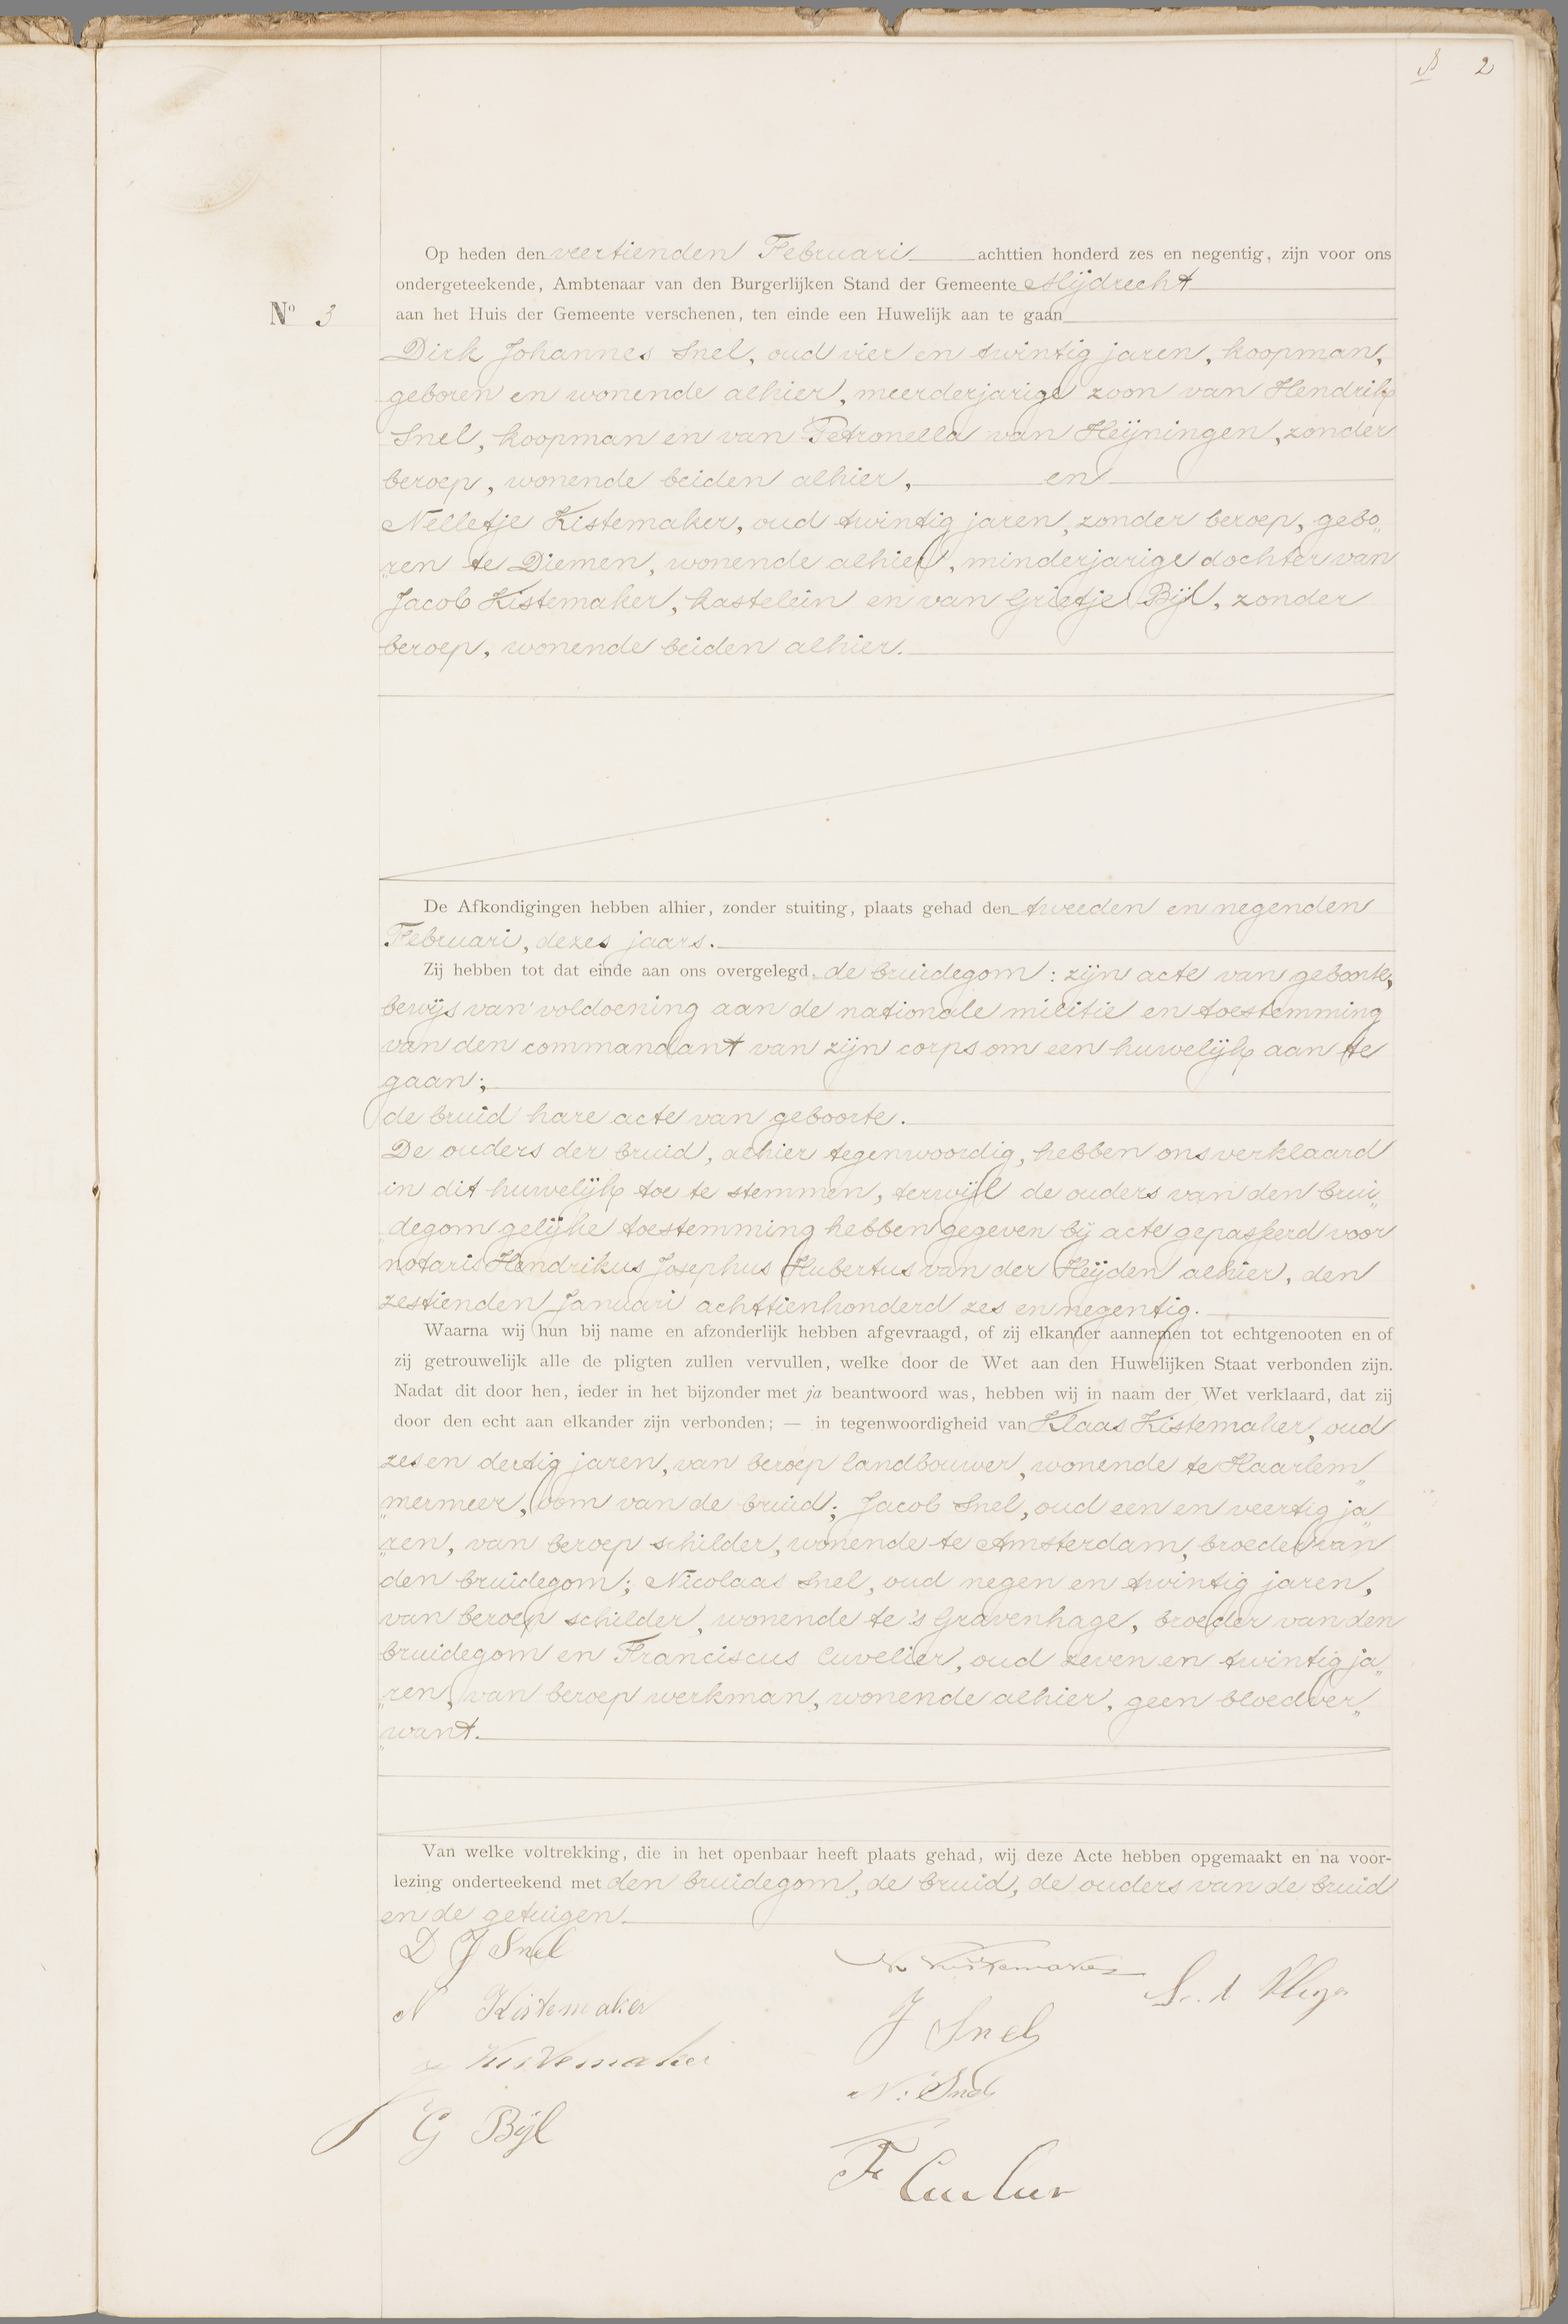 2
Op heden den veertienden Februari achttien honderd zes en negentig, zijn voor ons
ondergeteekende, Ambtenaar van den Burgerlijken Stand der Gemeente Mijdrecht
No 3
aan het Huis der Gemeente verschenen, ten einde een Huwelijk aan te gaan
Dirk Johannes Snel, oud vier en twintig jaren, koopman,
geboren en wonende alhier, meerderjarige zoon van Hendrik
Snel, koopman en van Petronella van Heijningen, zonder
beroep, wonende beiden alhier, en
Nelletje Kistemaker, oud twintig jaren, zonder beroep, gebo„
„ren te Diemen, wonende alhier, minderjarige dochter van
Jacob Kistemaker, kastelein en van Grietje Bijl, zonder
beroep, wonende beiden alhier.
De Afkondigingen hebben alhier, zonder stuiting, plaats gehad den tweeden en negenden
Februari, dezes jaars.
Zij hebben tot dat einde aan ons overgelegd, de bruidegom: zijn acte van geboorte,
bewijs van voldoening aan de nationale militie en toestemming
van den commandant van zijn corps om een huwelijk aan te
gaan;
de bruid hare acte van geboorte.
De ouders der bruid, alhier tegenwoordig, hebben ons verklaard
in dit huwelijk toe te stemmen, terwijl de ouders van den brui„
„degom gelijke toestemming hebben gegeven bij acte gepasseerd voor
notaris Hendrikus Josephus Hubertus van der Heijden alhier, den
zestienden Januari achttienhonderd zes en negentig.
Waarna wij hun bij name en afzonderlijk hebben afgevraagd, of zij elkander aannemen tot echtgenooten en of
zij getrouwelijk alle de pligten zullen vervullen, welke door de Wet aan den Huwelijken Staat verbonden zijn.
Nadat dit door hen, ieder in het bijzonder met ja beantwoord was, hebben wij in naam der Wet verklaard, dat zij
door den echt aan elkander zijn verbonden; — in tegenwoordigheid van Klaas Kistemaker, oud
zes en dertig jaren, van beroep landbouwer, wonende te Haarlem„
„mermeer, oom van de bruid; Jacob Snel, oud een en veertig ja„
„ren, van beroep schilder, wonende te Amsterdam, broeder van
den bruidegom; Nicolaas Snel, oud negen en twintig jaren,
van beroep schilder, wonende te 's Gravenhage, broeder van den
bruidegom en Franciscus Cuvelier, oud zeven en twintig ja„
„ren, van beroep werkman, wonende alhier, geen bloedver„
„want.
Van welke voltrekking, die in het openbaar heeft plaats gehad, wij deze Acte hebben opgemaakt en na voor-
lezing onderteekend met den bruidegom, de bruid, de ouders van de bruid
en de getuigen.
D J Snel
N Kistemaker
Kistemaker
G Bijl
K Kistemaker
J Snel
N. Snel
F